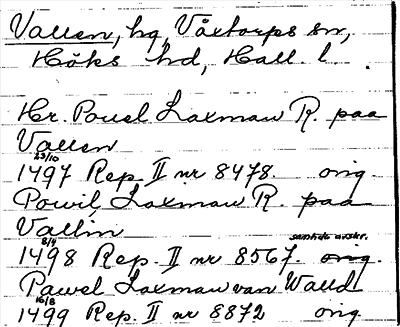 Vallen, hg, Våxtorps sn,
Höks hd, Hall. l.
Hr. Pouel Laxman R. paa
Vallen
23/10
1497 Rep. II nr 8478. orig.
Powil Laxman R. paa
Vallin
8/4 samtida avskr.
1498 Rep. II nr 8567. orig.
Pawel Laxman van Walld
16/8
1499 Rep. II nr 8872 orig.